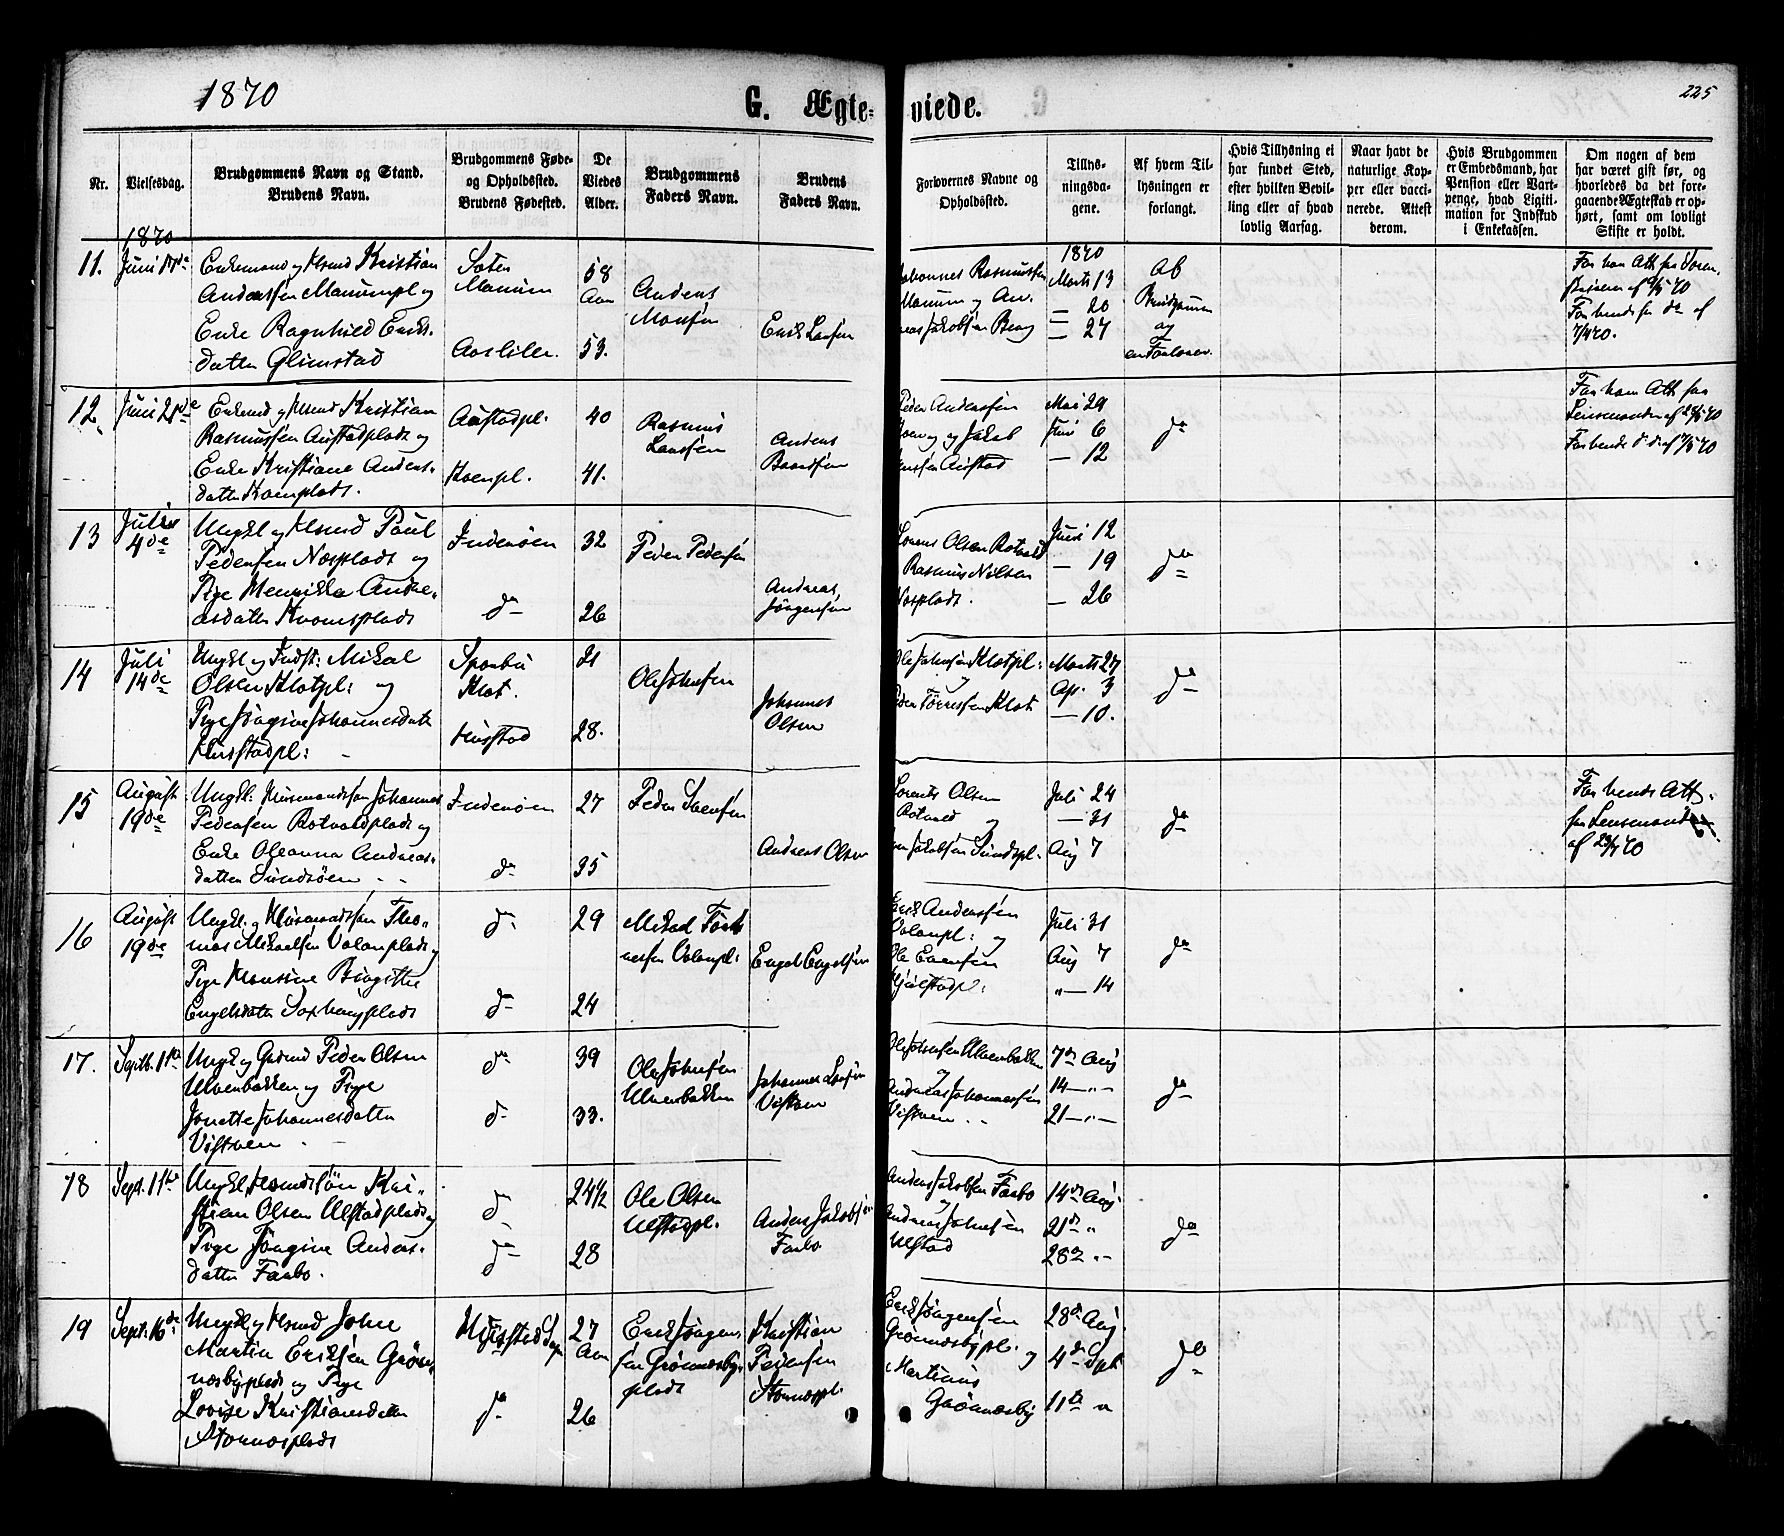 1870
225
G. Ægte=
viede.
Nr.
Vielsesdag.
Brudgommens Navn og Stand.
Brudens Navn.
Brudgommens Føde-
og Opholdssted.
Brudens Fødested.
De
Viedes
Alder.
Brudgommens
Faders Navn.
Brudens
Faders Navn.
Forlovernes Navne og
Opholdssted.
Tillys-
ningsda-
gene.
Af hvem Til-
lysningen er
forlangt.
Hvis Tillysning ei
har fundet Sted,
efter hvilken Bevil-
ling eller af hvad
lovlig Aarsag.
Naar havt de
naturlige Kop-
per eller vacci-
nerede. Attest
derom.
Hvis Brudgommen
er Embedsmand, har
Pension eller Vart-
penge, hvad Ligiti-
mation for Indskud
i Enkekassen.
Om nogen af dem
har været gift før, og
hvorledes da det fore-
gaaende Ægteskab er op-
hørt, samt om lovligt
Skifte er holdt.
1870
11.
Enkemand og Kristian
Anderssen Mærumpl og
Enke Ragnhild Eriks-
datter Glimstad
58
Aar
53.
Anders
Erik Larsen
Johannes Rasmussen
1870
Marts 13
— 20
— 27
Af
Brudgommen
og
en Forlover.
12
Juni 21de
Kristian
Rasmussen Austadplads og
Enke Kristiane Anders-
datter
Austadpl.
40
41.
Rasmus
Larssen
Anders
Peder Anderssen
og Jakob
Austad
Mai 29
Juni 6
— 12
do
For ham Att fra
Lensmanden af
13
Juli
4de
Ungkl og Paul
Pedersen Næsplads og
Pige Henrikka Andre-
asdatter Kvamsplads
Inderøen
do
32
26
Peder Pedersen
Andreas
Jørgensen
Lorents Olsen Rotvold
Rasmus Nilsen
Næsplads.
Juni 12
— 19
— 26
do
14
Juli
14de
Ungkl og Indst: Mikal
Olsen Klotpl: og
Pige Jørgine Johannesdatt
Husstadpl:
Sparbu
Klot.
Husstad
21
28.
Ole Johnsen
Johannes
Olsen
Ole Johnsen Klotpl:
og
Peder Tørresen Klot
Marts 27
Ap. 3
— 10.
do
15
August
19de
Ungkl: Husmandssøn Johannes
Pedersen Rotvoldplads og
Enke Oleanna Andreas-
datter Sundsøen
Inderøen
do
27
35
Peder Svensen
Andreas Olsen
Lorents Olsen
Rotvold og
Jakobsen Sundspl.
Juli 24
— 31
Aug 7
do
For hende Att.
fra Lensmand
16
August
19de
Ungkl. og Husmandssøn Tho-
mas Mikaelsen Volanplads og
Pige Hansine Birgitte
Engelsdatter Saxhaugplads
do
do
29
24
Mikael
Volanpl:
Engel Engelsen
Erik Anderssen
Volanpl: og
Ole Evensen
Hjælstadpl:
Juli 31
Aug 7
" — 14
do
17.
Septb. 11te
Ungkl og Peder Olsen
Ulvenbakken og Pige
Jonette Johannesdatter
Vistven
do
do
39
33.
Ole Johnsen
Ulvenbakken
Johannes Larsen
Vistven
Ole Johnsen Ulvenbakken
og
Andreas Johannessen
Vistven
7de Aug
14 — " —
21 — " —
do
18
Sept. 11te
Ungkl, Husmdssøn Kri-
stian Olsen Ulstadplads og
Pige Jørgine Anders-
datter Faabo.
do
do
24½
28
Ole Olsen
Ulstadpl.
Anders Jakobsen
Faabo
Anders Jakobsen Faabo
og
Andreas Johnsen
Ulstad
14de Aug
21de "
28de "
do
19
Sept. 16de
Ungkl og John
Martin Eriksen Grøn-
næsbyplads og Pige
Lovise Kristiansdatter
Stornæsplads
do
27
Aar
26
Erik Jørgen-
sen Grønnæsby-
plads
Kristian
Pedersen
Stornæspl.
Erik Jørgensen
Grønnæsbypl. og
Martinus
Grønnæsby
28de Aug.
4de Sept
11te "
do